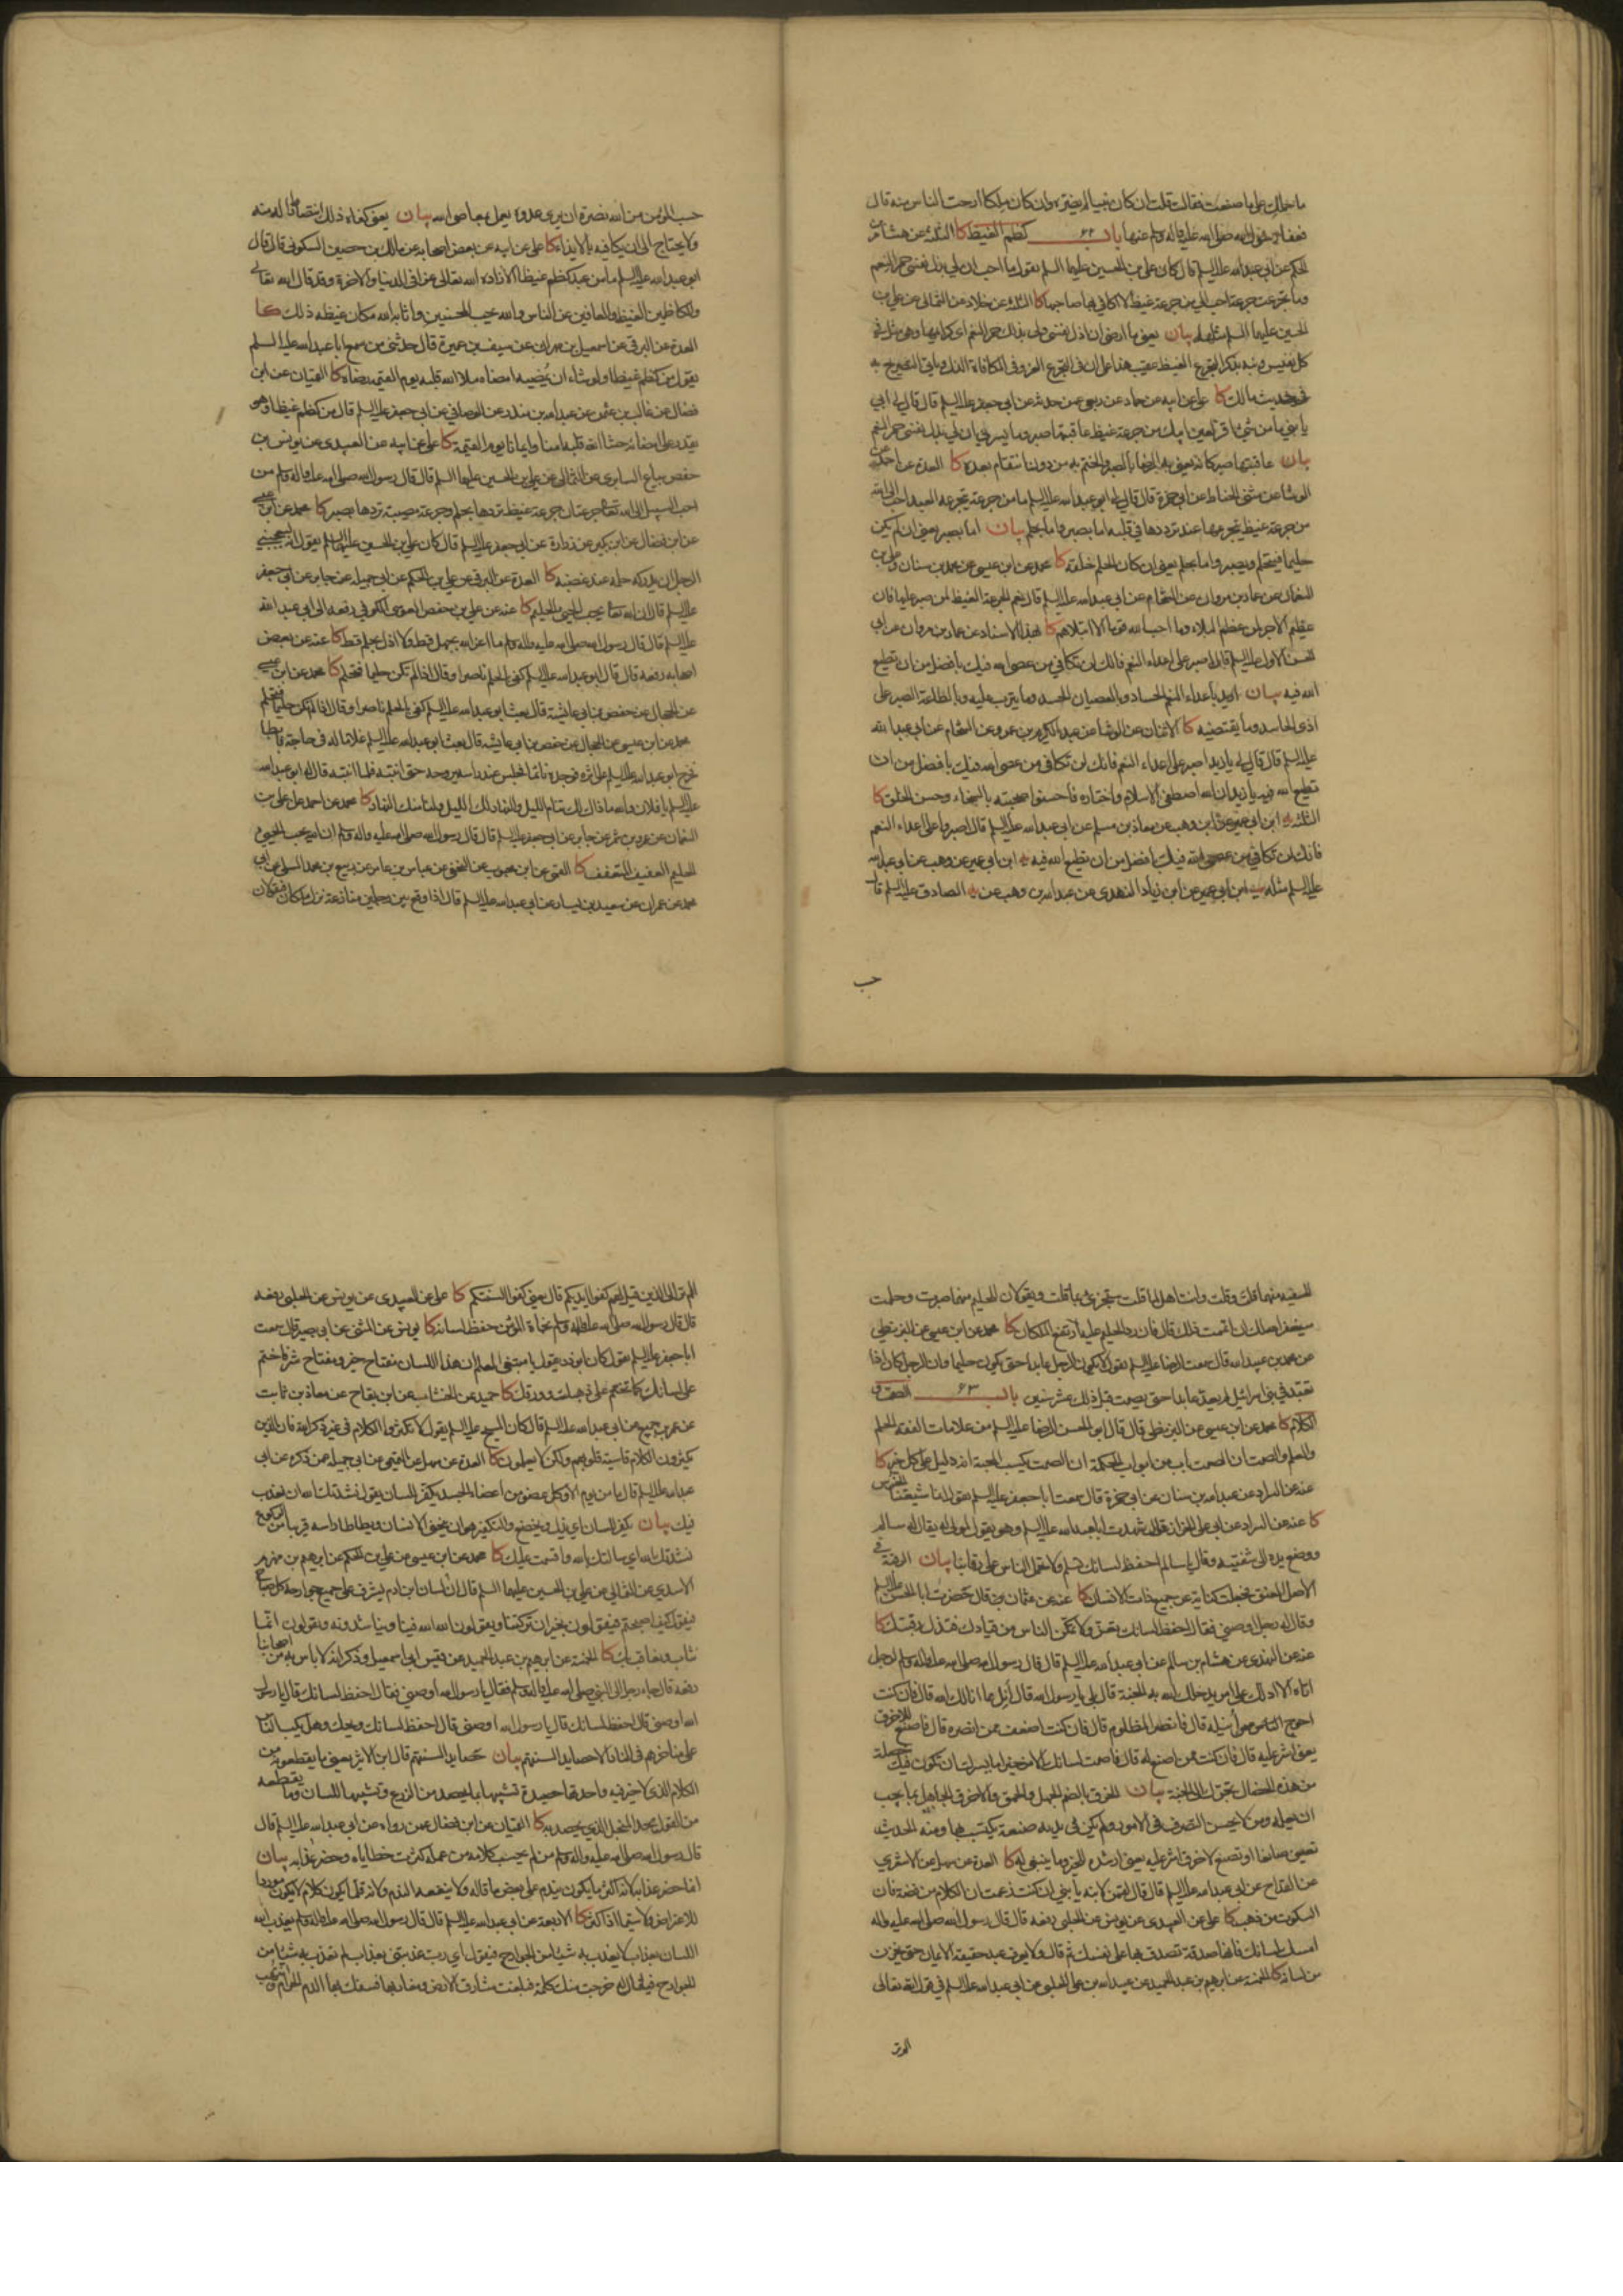 ما حملك على ما صنعت فقالت قلت ان كان نبيا لم يضره وان كان ملكا ارحت الناس منه قال
فعفا رسول الله صلى الله عليه وآله عنها باب ٦٢ كظم الغيظ كا الثلثة عن هشام بن
الحكم عن ابي عبد الله عليه السلم قال كان علي بن الحسين عليهما السلم يقول ما احب ان لي بذل نفسي حمر النعم
وما تجرعت جرعة احب الي من جرعة غيظ لا اكافي بها صاحبها كا الثلثة عن خلاد عن الثمالي عن علي بن
الحسين عليهما السلم مثله بيان يعني ما ارضى ان اذل نفسي ولي بذلك حمر النعم اي كرايمها وهي مثل في
كل نفيس ونبه بذكر تجرع الغيظ عقيب هذا على ان في التجرع العز وفي المكافاة الذل وياتي التصريح به
في حديث مالك كا علي عن ابيه عن حماد عن ربعي عمن حدثه عن ابي جعفر عليه السلم قال قال لي ابي
يا بني ما من شيء اقر لعين ابيك من جرعة غيظ عاقبتها صبر وما يسرني ان لي بذل نفسي حمر النعم
بيان عاقبتها صبر كانه يعني به الرضا بالصبر والختم به من دون انتقام بعده كا العدة عن احمد عن
الوشا عن مثنى الحناط عن ابي حمزة قال قال ابو عبد الله عليه السلم ما من جرعة يتجرعها العبد احب الى الله
من جرعة غيظ يتجرعها عند ترددها في قلبه اما بصبر واما بحلم بيان اما بصبر يعني ان لم يكن
حليما فيتحلم ويصبر واما بحلم يعني ان كان الحلم خلقه كا محمد عن ابن عيسى عن محمد بن سنان وعلي بن
النعمان عن عمار بن مروان عن الشحام عن ابي عبد الله عليه السلم قال نعم الجرعة الغيظ لمن صبر عليها فان
عظيم الاجر لمن عظيم البلاء وما احب الله قوما الا ابتلاهم كا بهذا الاسناد عن عمار بن مروان عن ابي
الحسن الاول عليه السلم قال اصبر على اعداء النعم فانك لن تكافي من عصى الله فيك بافضل من ان تطيع
الله فيه بيان اريد باعداء النعم الحساد وبالعصيان الحسد وما يترتب عليه وبالطاعة الصبر على
اذى الحاسد وما يقتضيه كا الاثنان عن الوشا عن عبد الكريم بن عمرو عن الشحام عن ابي عبد الله
عليه السلم قال قال لي يا زيد اصبر على اعداء النعم فانك لن تكافي من عصى الله فيك بافضل من ان
تطيع الله فيه يا زيد ان الله اصطفى الاسلام واختاره فاحسنوا صحبته بالسخاء وحسن الخلق كا
الثلثة ابن ابي عمير عن ابن وهب عن معاذ بن مسلم عن ابي عبد الله عليه السلم قال اصبروا على اعداء النعم
فانك لن تكافي من عصى الله فيك بافضل من ان تطيع الله فيه ابن ابي عمير عن وهب عن ابي عبد الله
عليه السلم مثله ابن ابي عمير عن ابن زياد النهدي عن عبد الله بن وهب عن الصادق عليه السلم قال
حب
حسب المؤمن من الله نصرة ان يرى عدوه يعمل بمعاصي الله بيان يعني كفاه ذلك انتصافا له منه
ولا يحتاج الى ان يكافيه بالايذاء كا علي عن ابيه عن بعض اصحابه عن مالك بن حصين السكوني قال قال
ابو عبد الله عليه السلم ما من عبد كظم غيظا الا زاده الله تعالى عزا في الدنيا والآخرة وقد قال الله تعالى
والكاظمين الغيظ والعافين عن الناس والله يحب المحسنين واثابه الله مكان غيظه ذلك كا
العدة عن البرقي عن اسمعيل بن مهران عن سيف بن عميرة قال حدثني من سمع ابا عبد الله عليه السلم
يقول من كظم غيظا ولو شاء ان يمضيه امضاه ملا الله قلبه يوم القيمة رضاه كا القميان عن ابن
فضال عن غالب بن عثمن عن عبد الله بن منذر عن الوصافي عن ابي جعفر عليه السلم قال من كظم غيظا وهو
يقدر على امضائه حشا الله قلبه امنا وايمانا يوم القيمة كا علي عن ابيه عن العبيدي عن يونس عن
حفص بياع السابري عن الثمالي عن علي بن الحسين عليهما السلم قال قال رسول الله صلى الله عليه وآله وسلم من
احب السبيل الى الله تعالى جرعتان جرعة غيظ تردها بحلم وجرعة مصيبة تردها بصبر كا محمد عن ابن عيسى
عن ابن فضال عن ابن بكير عن زرارة عن ابي جعفر عليه السلم قال كان علي بن الحسين عليهما السلم يقول انه ليعجبني
الرجل ان يدركه حلمه عند غضبه كا العدة عن البرقي عن علي بن الحكم عن ابي جميلة عن جابر عن ابي جعفر
عليه السلم قال ان الله تعالى يحب الحيي الحليم كا عنه عن علي بن حفص العوسي الكوفي رفعه الى ابي عبد الله
عليه السلم قال قال رسول الله صلى الله عليه وآله وسلم ما اعز الله بجهل قط ولا اذل بحلم قط كا عنه عن بعض
اصحابه رفعه قال قال ابو عبد الله عليه السلم كفى بالحلم ناصرا وقال اذا لم تكن حليما فتحلم كا محمد عن ابن عيسى
عن الحجال عن حفص بن ابي عايشة قال بعث ابو عبد الله عليه السلم كفى بالحلم ناصرا وقال اذا لم تكن حليما فتحلم
محمد عن ابن عيسى عن الحجال عن حفص بن ابي عايشة قال بعث ابو عبد الله عليه السلم غلاما له في حاجة فابطا
فخرج ابو عبد الله عليه السلم على اثره فوجده نائما فجلس عند راسه يروحه حتى انتبه فلما انتبه قال له ابو عبد الله
عليه السلم يا فلان والله ما ذاك لك تنام الليل والنهار لك الليل ولنا منك النهار كا محمد عن احمد عن علي بن
النعمان عن عمرو بن شمر عن جابر عن ابي جعفر عليه السلم قال قال رسول الله صلى الله عليه وآله وسلم ان الله يحب الحيي
الحليم العفيف المتعفف كا القمي عن ابن محبوب عن النخعي عن عباس بن عامر عن ربيع بن محمد المسلي عن ابي
محمد عن عمران عن سعيد بن يسار عن ابي عبد الله عليه السلم قال اذا وقع بين رجلين منازعة نزل ملكان فيقولان
للسفيه منهما قلت وقلت وانت اهل لما قلت ستجزى بما قلت ويقولان للحليم منهما صبرت وحلمت
سيغفر الله لك ان اتممت ذلك قال فان رد الحليم عليه ارتفع الملكان كا محمد عن ابن عيسى عن البزنطي
عن محمد بن عبيد الله قال سمعت الرضا عليه السلم يقول لا يكون الرجل عابدا حتى يكون حليما وان الرجل كان اذا
تعبد في بني اسرائيل لم يعد عابدا حتى يصمت قبل ذلك عشر سنين باب ٦٣ الصمت و
الكلام كا محمد عن ابن عيسى عن البزنطي قال قال ابو الحسن الرضا عليه السلم من علامات الفقه الحلم
والعلم والصمت ان الصمت باب من ابواب الحكمة ان الصمت يكسب المحبة انه دليل على كل خير كا
عنه عن السراد عن عبد الله بن سنان عن ابي حمزة قال سمعت ابا جعفر عليه السلم يقول انما شيعتنا الخرس
كا عنه عن السراد عن ابي علي الجواني قال شهدت ابا عبد الله عليه السلم وهو يقول لمولى له يقال له سالم
ووضع يده الى شفتيه وقال يا سالم احفظ لسانك تسلم ولا تحمل الناس على رقابنا بيان الرقبة في
الاصل العنق فجعلت كناية عن جميع ذات الانسان كا عنه عن عثمان قال حضرت ابا الحسن عليه السلم
وقال له رجل اوصني فقال احفظ لسانك تعز ولا تمكن الناس من قيادك فتذل رقبتك كا
عنه عن النهدي عن هشام بن سالم عن ابي عبد الله عليه السلم قال قال رسول الله صلى الله عليه وآله وسلم لرجل
اتاه الا ادلك على امر يدخلك الله به الجنة قال بلى يا رسول الله قال انل مما انالك الله قال فان كنت
احوج ممن انيله قال فانصر المظلوم قال فان كنت اضعف ممن انصره قال فاصنع للاخرق
يعني اشر عليه قال فان كنت اخرق ممن اصنع له قال فاصمت لسانك الا من خير اما يسرك ان تكون فيك خصلة
من هذه الخصال تجرك الى الجنة بيان الخرق بالضم الجهل والحمق والاخرق الجاهل بما يجب
ان يعلمه ومن لا يحسن التصرف في الامور ولم يكن في يديه صنعة يكتسب بها ومنه الحديث
تعين صانعا او تصنع لاخرق اشر عليه يعني ارشده للخير وما ينبغي له كا العدة عن سهل عن الاشعري
عن القداح عن ابي عبد الله عليه السلم قال قال لقمن لابنه يا بني ان كنت زعمت ان الكلام من فضة فان
السكوت من ذهب كا علي عن العبيدي عن يونس عن الحلبي رفعه قال قال رسول الله صلى الله عليه وآله
امسك لسانك فانها صدقة تصدق بها على نفسك ثم قال ولا يعرف عبد حقيقة الايمان حتى يخزن
من لسانه كا الخمسة عن ابرهيم بن عبد الحميد عن عبيد الله بن علي الحلبي عن ابي عبد الله عليه السلم في قول الله تعالى
الم تر
الم تر الى الذين قيل لهم كفوا ايديكم قال يعني كفوا السنتكم كا علي عن العبيدي عن يونس عن الحلبي رفعه
قال قال رسول الله صلى الله عليه وآله وسلم نجاة المؤمن حفظ لسانه كا يونس عن المثنى عن ابي بصير قال سمعت
ابا جعفر عليه السلم يقول كان ابوذر يقول يا مبتغي العلم ان هذا اللسان مفتاح خير ومفتاح شر فاختم
على لسانك كما تختم على ذهبك وورقك كا حميد عن الخشاب عن ابن بقاح عن معاذ بن ثابت
عن عمرو بن جميع عن ابي عبد الله عليه السلم قال كان المسيح عليه السلم يقول لا تكثروا الكلام في غير ذكر الله فان الذين
يكثرون الكلام قاسية قلوبهم ولكن لا يعلمون كا العدة عن سهل عن التميمي عن ابي جميلة عمن ذكره عن ابي
عبد الله عليه السلم قال ما من يوم الا وكل عضو من اعضاء الجسد يكفر اللسان يقول نشدتك الله ان نعذب
فيك بيان يكفر اللسان اي يذل ويخضع والتكفير هو ان ينحني الانسان ويطاطا راسه قريبا من الركوع
نشدتك بالله اي سالتك بالله واقسمت عليك كا محمد عن ابن عيسى عن علي بن الحكم عن ابرهيم بن مهزم
الاسدي عن الثمالي عن علي بن الحسين عليهما السلم قال ان لسان ابن ادم يشرف على جميع جوارحه كل صباح
فيقول كيف اصبحتم فيقولون بخير ان تركتنا ويقولون الله الله فينا ويناشدونه ويقولون انما
نثاب ونعاقب بك كا الخمسة عن ابرهيم بن عبد الحميد عن قيس ابي اسمعيل وذكر انه لا باس به من اصحابنا
رفعه قال جاء رجل الى النبي صلى الله عليه وآله وسلم فقال يا رسول الله اوصني فقال احفظ لسانك قال يا رسول
الله اوصني قال احفظ لسانك قال يا رسول الله اوصني قال احفظ لسانك ويحك وهل يكب الناس
على مناخرهم في النار الا حصايد السنتهم بيان حصايد السنتهم قال ابن الاثير يعني ما يقطعونه من
الكلام الذي لا خير فيه واحدتها حصيدة تشبيها بما يحصد من الزرع وتشبيها للسان وما يقطعه
من القول بحد المنجل الذي يحصد به كا القميان عن ابن فضال عمن رواه عن ابي عبد الله عليه السلم قال
قال رسول الله صلى الله عليه وآله وسلم من لم يحسب كلامه من عمله كثرت خطاياه وحضر عذابه بيان
انما حضر عذابه لانه اكثر ما يكون يندم على بعض ما قاله ولا ينفعه الندم ولانه قلما يكون كلام لا يكون موردا
للاعتراض ولا سيما اذا كثر كا الاربعة عن ابي عبد الله عليه السلم قال قال رسول الله صلى الله عليه وآله وسلم يعذب الله
اللسان بعذاب لا يعذب به شيئا من الجوارح فيقول اي رب عذبتني بعذاب لم تعذب به شيئا من
الجوارح فيقال له خرجت منك كلمة فبلغت مشارق الارض ومغاربها فسفك بها الدم الحرام وانتهب